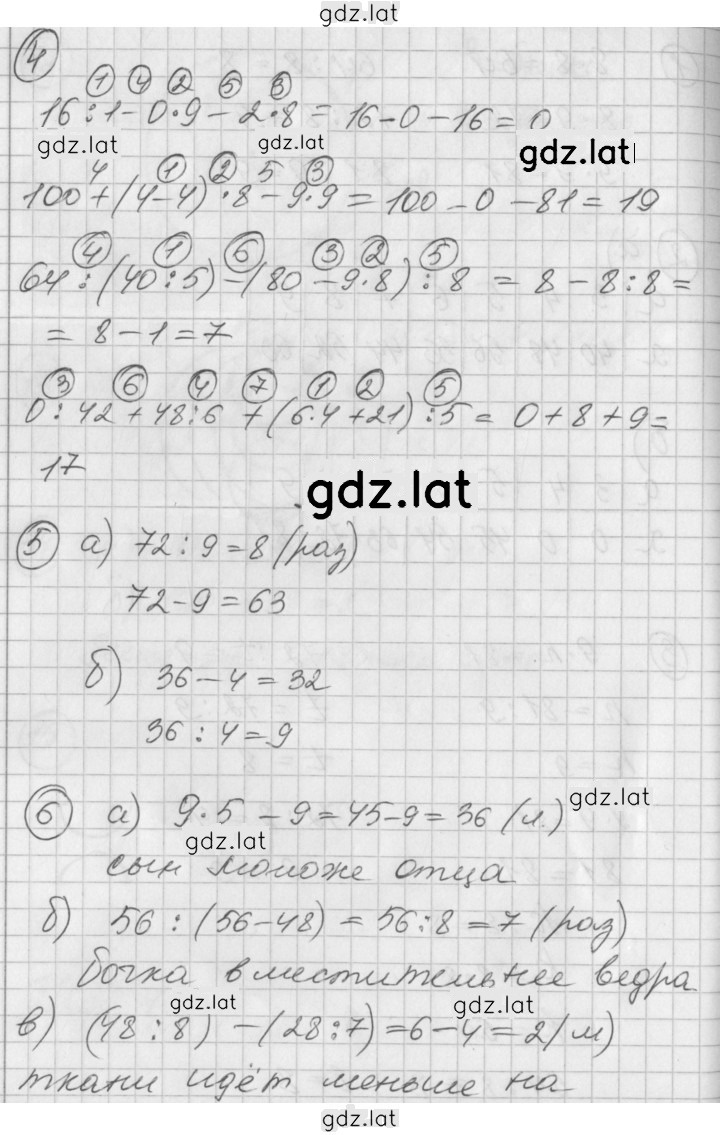 gdz.lat
4
1 4 2 5 3
16:1-0·9-2·8=16-0-16=0
gdz.lat gdz.lat gdz.lat
4 1 2 5 3
100+(4-4)·8-9·9=100-0-81=19
4 1 6 3 2 5
64:(40:5)-(80-9·8):8 = 8-8:8=
= 8-1=7
3 6 4 7 1 2 5
0:42+48:6+(6·4+21):5= 0+8+9=
17
gdz.lat
5 а) 72:9=8 (раз)
72-9=63
б) 36-4=32
36:4=9
6 а) 9·5-9=45-9=36 (л.)
gdz.lat
gdz.lat
сын моложе отца
б) 56:(56-48)=56:8=7 (раз)
бочка вместительнее ведра
gdz.lat gdz.lat
в) (48:8)-(28:7)=6-4=2(м)
ткани идёт меньше на
gdz.lat